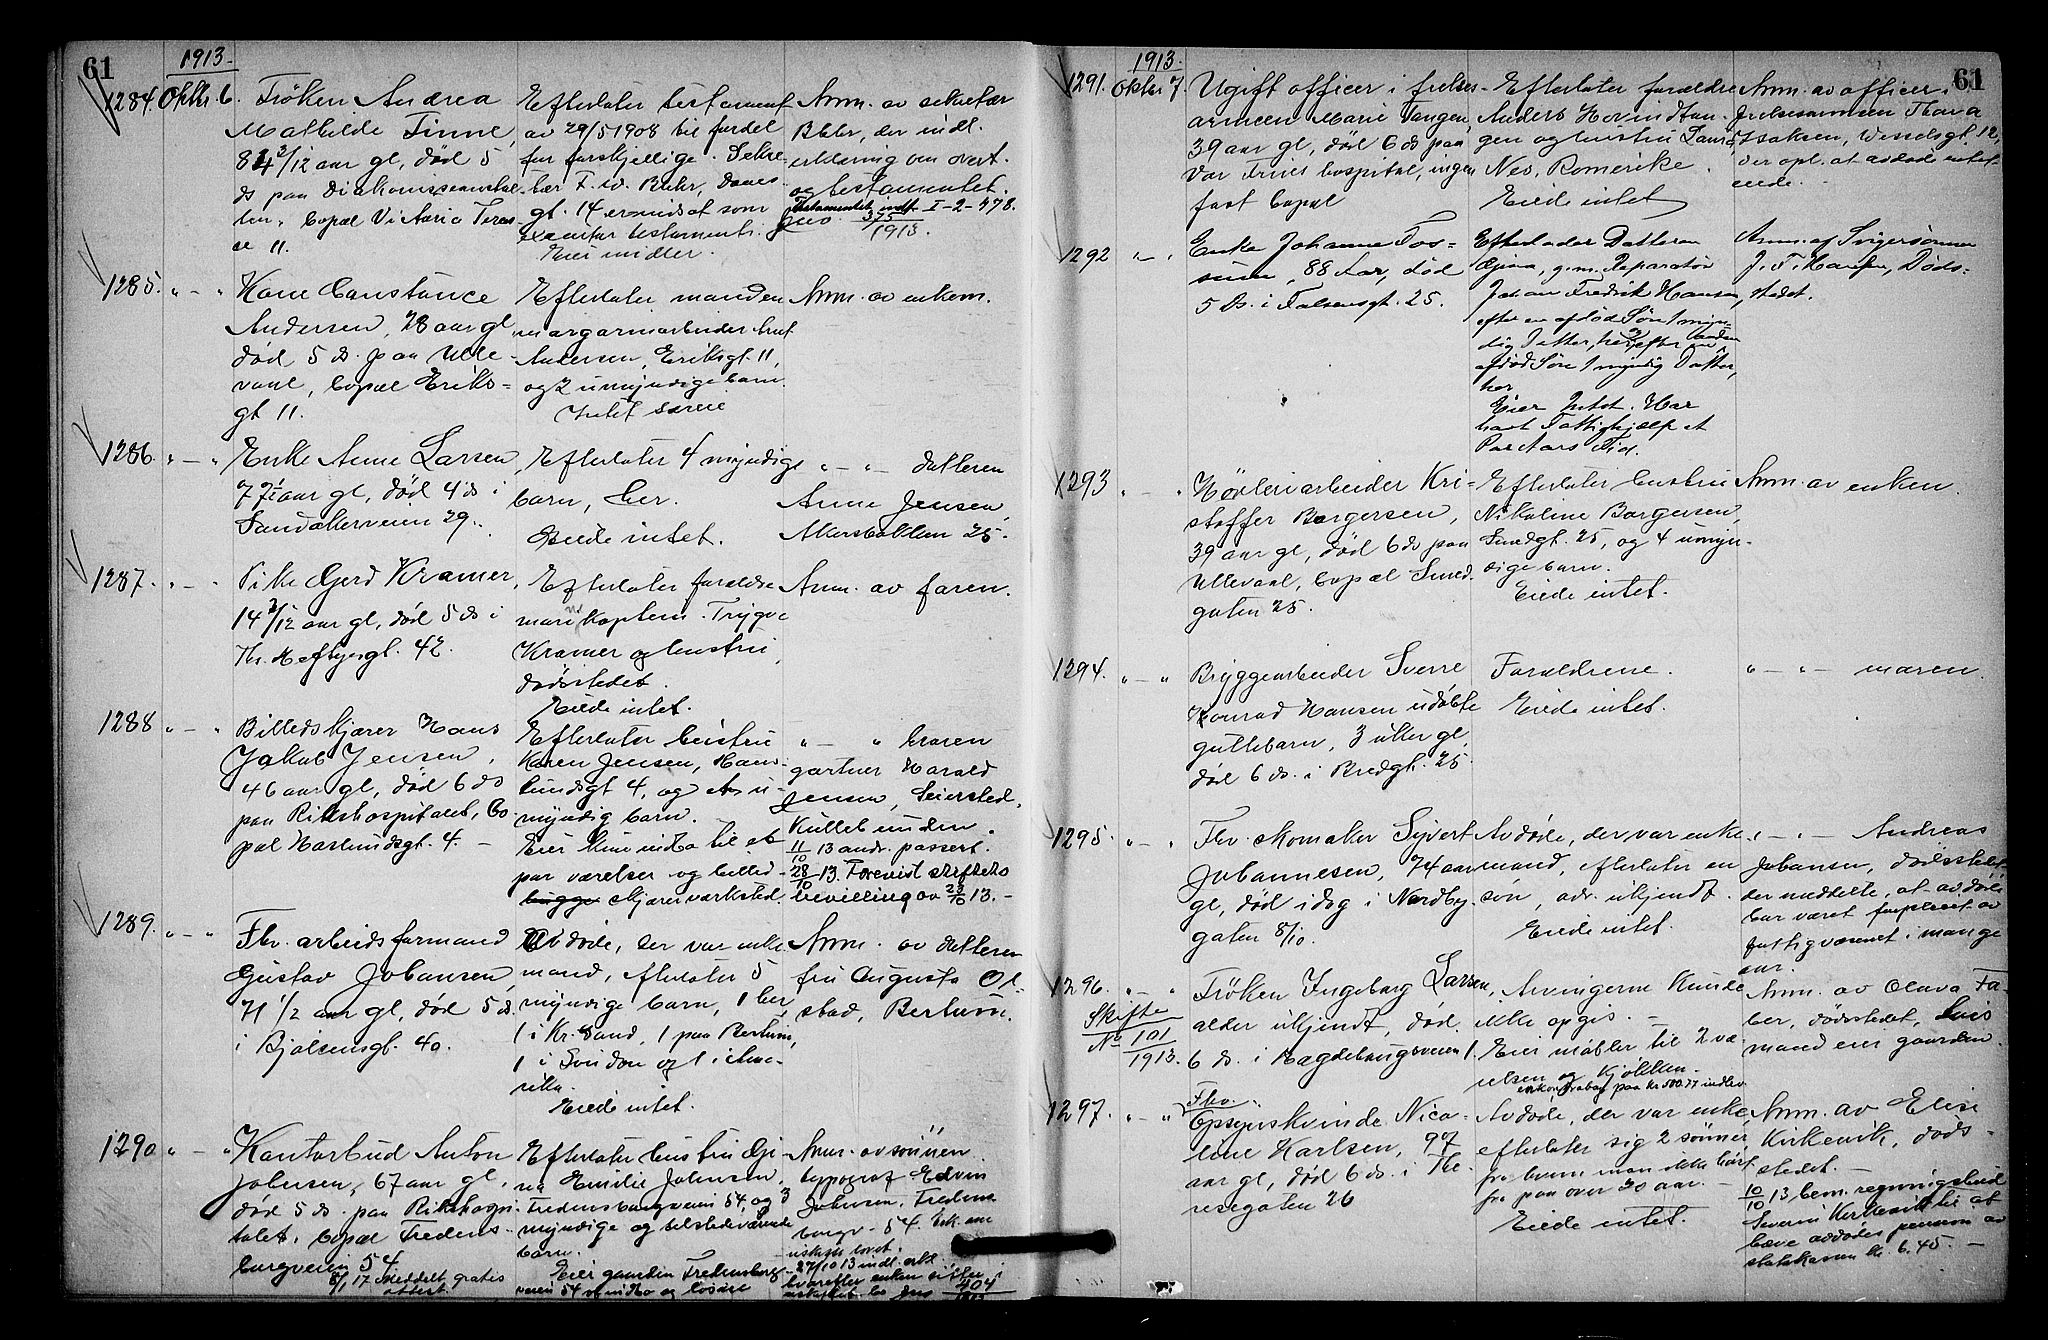 61
1913.
1284. Oktbr. 6.
Frøken Andrea
Mathilde Finne,
84 3/12 aar gl, død 5
ds paa Diakonisseanstal
ten, bopæl Victoria Teras
se 11.
Efterlater testament
av 29/5 1908 til fordel
for forskjellige. Sekre-
tær F. W.
gt. 14 er indsat som
executor testamenti.
Eier midler.
Anm. av sekretær
der indl.
erklæring om overt.
og testamentet.
Testamentet indt. I-2-478.
Jno 375
1913.
1285. " - "
Kone Constance
Andersen, 28 aar gl
død 5 ds. paa Ulle-
vaal, bopæl Eriks-
gt 11.
Efterlater manden
margarinarbeider
Andersen, Eriksgt. 11,
og 2 umyndige barn.
Intet særeie
Anm. av enkem.
1286. " - "
Enke Anne Larsen,
77 1/2 aar gl, død 4 ds i
Sandakerveien 29.
Efterlater 4 myndige
barn, her.
Eiede intet.
" - " - datteren
Anne Jensen,
Akersbakken 25.
1287. " - "
Pike Gerd Kramer,
14 3/12 aar gl, død 5 ds i
Th. Heftyesgt. 42.
Efterlater forældre
marinekaptein Trygve
Kramer og hustru,
dødsstedet.
Eiede intet.
Anm. av faren.
1288 " - "
Billedskjærer Hans
Jakob Jensen,
46 aar gl, død 6 ds
paa Rikshospitalet, bo
pæl Haslundsgt. 4. -
Efterlater hustru
Karen Jensen,
lundsgt 4, og et u-
myndig barn.
Eier kun indbo til et
par værelser og billed-
skjærerværksted.
" - " broren
gartner Harald
Jensen,
11/10 13 andr. passert.
28/10 13. Forevist skiftets
bevilling av 23/10 13. -
1289. " - "
Fhv. arbeidsformand
Gustav Johansen,
71 1/2 aar gl, død 5 ds.
i Bjølsensgt. 40.
Avdøde, der var enke
mand, efterlater 5
myndige barn, 1 her,
1 i Kr. Sand, 1 paa Bestum,
1 i London og 1 i Ame-
rika.
Eiede intet.
Anm. av datteren
fru Augusta Ol-
stad, Bestum.
1290 " - "
Kontorbud Anton
Johnsen, 67 aar gl,
død 5 ds. paa Rikshospi
talet, bopæl Fredens-
borgveien 54.
8/1 17 meddelt gratis
attest.
Efterlater hustru Gi-
na Emilie Johnsen,
Fredensborgveien 54, og 3
myndige og tilstedeværende
barn.
Eier gaarden Fredensborg-
veien 54 og indbo og løsøre
Anm. av sønnen
typograf Edvin
Johnsen, Fredens
borgv. 54. Erk. om
uskifte lovet.
27/10 13 indl. erkl
hvorefter enken sitter
i uskiftet bo Jno 404
1913
61
1913.
1291. Oktbr. 7.
Ugift officer i frelses-
armeen Marie Tangen
39 aar gl, død 6 ds paa
Vor Frues hospital, ingen
fast bopæl
Efterlater forældre
Anders Hovind Tan-
gen og hustru Laura,
Nes, Romerike.
Eiede intet
Anm. av officer i
frelsesarmeen Thora
Isaksen, Wesselsgt. 12,
der opl. at avdøde intet
eiede. -
1292 " - "
Enke Johanne Fos-
sum, 88 Aar, død
5 ds. i Falsensgt. 25.
Efterlader Datteren
g. m. Reparatør
Johan Fredrik Hansen,
efter en afdød Søn 1 myn-
dig Datter, her, og efter en anden
afdød Søn 1 myndig Datter,
her
Eier Intet. Har
havt Fattighjælp et
Par Aars Tid.
Anm. af Svigersønnen
J. F. Hansen, Døds-
stedet.
1293 " - "
Høvleriarbeider Kri-
stoffer Borgersen,
39 aar gl, død 6 ds paa
Ullevaal, bopæl Smed
gaten 25.
Efterlater hustru
Nikoline Borgersen,
Smedgt. 25, og 4 umyn-
dige barn.
Eiede intet.
Anm. av enken.
1294. " - "
Bryggearbeider Sverre
Konrad Hansen udøbte
guttebarn, 3 uker gl,
død 6 ds. i Bredgt. 25.
Forældrene.
Eiede intet.
" - " - moren.
1295. " - "
Fhv. skomaker Syvert
Johannesen, 74 aar
gl, død idag i Nordby-
gaten 8/10.
Avdøde, der var enke
mand, efterlater en
søn, adr. ukjendt.
Eiede intet.
" - " - Andreas
Johansen, dødsstedet
der meddelte, at avdøde
har været forpleiet av
fattigvæsenet i mange
aar.
1296. " - "
Skifte
No 101
1913.
Frøken Ingeborg Larsen,
alder ukjendt, død
6 ds. i Bagdehaugsveien 1.
Arvingerne kunde
ikke opgis. -
Eier møbler til 2 væ-
relser og kjøkken.
Anm. av Olava Fa-
ber, dødsstedet,
mand eier gaarden.
1297. " - "
Fhv.
Opsynskvinde Nico-
line Karlsen, 97
aar gl, død 6 ds. i The-
resegaten 26
Avdøde, der var enke,
efterlater sig 2 sønner,
fra hvem man ikke hørt
fra paa over 30 aar. -
Eiede intet.
Anm. av Elise
Kirkevik, døds-
stedet. -
10/10 13 bem. regningsbud
Severin Kirkevik til at
hæve avdødes pension av
statskassen kr. 6.45. -